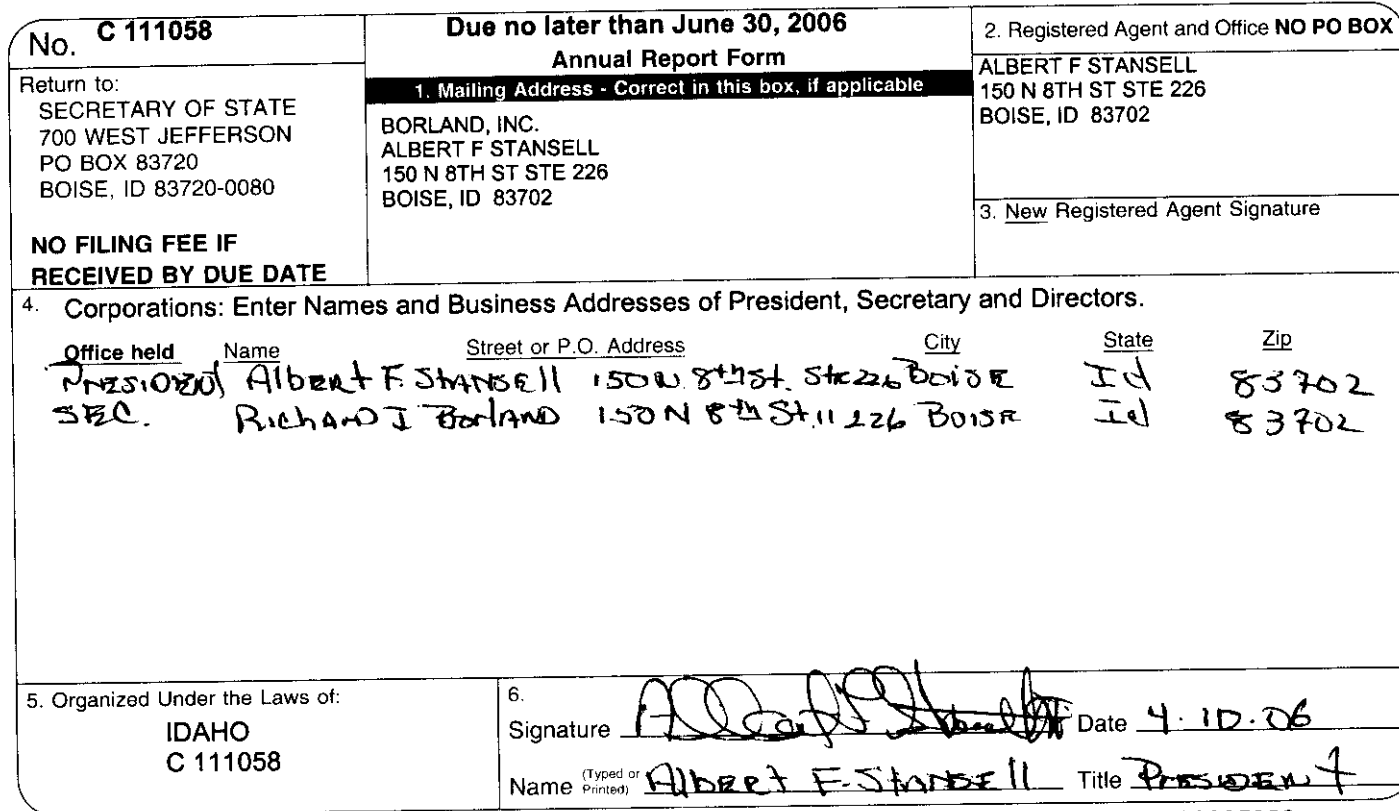 No. C 111058
Return to:
SECRETARY OF STATE
700 WEST JEFFERSON
PO BOX 83720
BOISE, ID 83720-0080
NO FILING FEE IF
RECEIVED BY DUE DATE
Due no later than June 30, 2006
Annual Report Form
1. Mailing Address - Correct in this box, if applicable
BORLAND, INC.
ALBERT F STANSELL
150 N 8TH ST STE 226
BOISE, ID 83702
2. Registered Agent and Office NO PO BOX
ALBERT F STANSELL
150 N 8TH ST STE 226
BOISE, ID 83702
3. New Registered Agent Signature
4. Corporations: Enter Names and Business Addresses of President, Secretary and Directors.
Office held Name Street or P.O. Address City State Zip
PRESIDENT Albert F. Stansell 150 N 8th St. Ste 226 Boise Id 83702
SEC. Richard J Borland 150 N 8th St. 11 226 Boise Id 83702
5. Organized Under the Laws of:
IDAHO
C 111058
6.
Signature Date 4.10.06
Name (Typed or Printed) Albert F. Stansell Title President